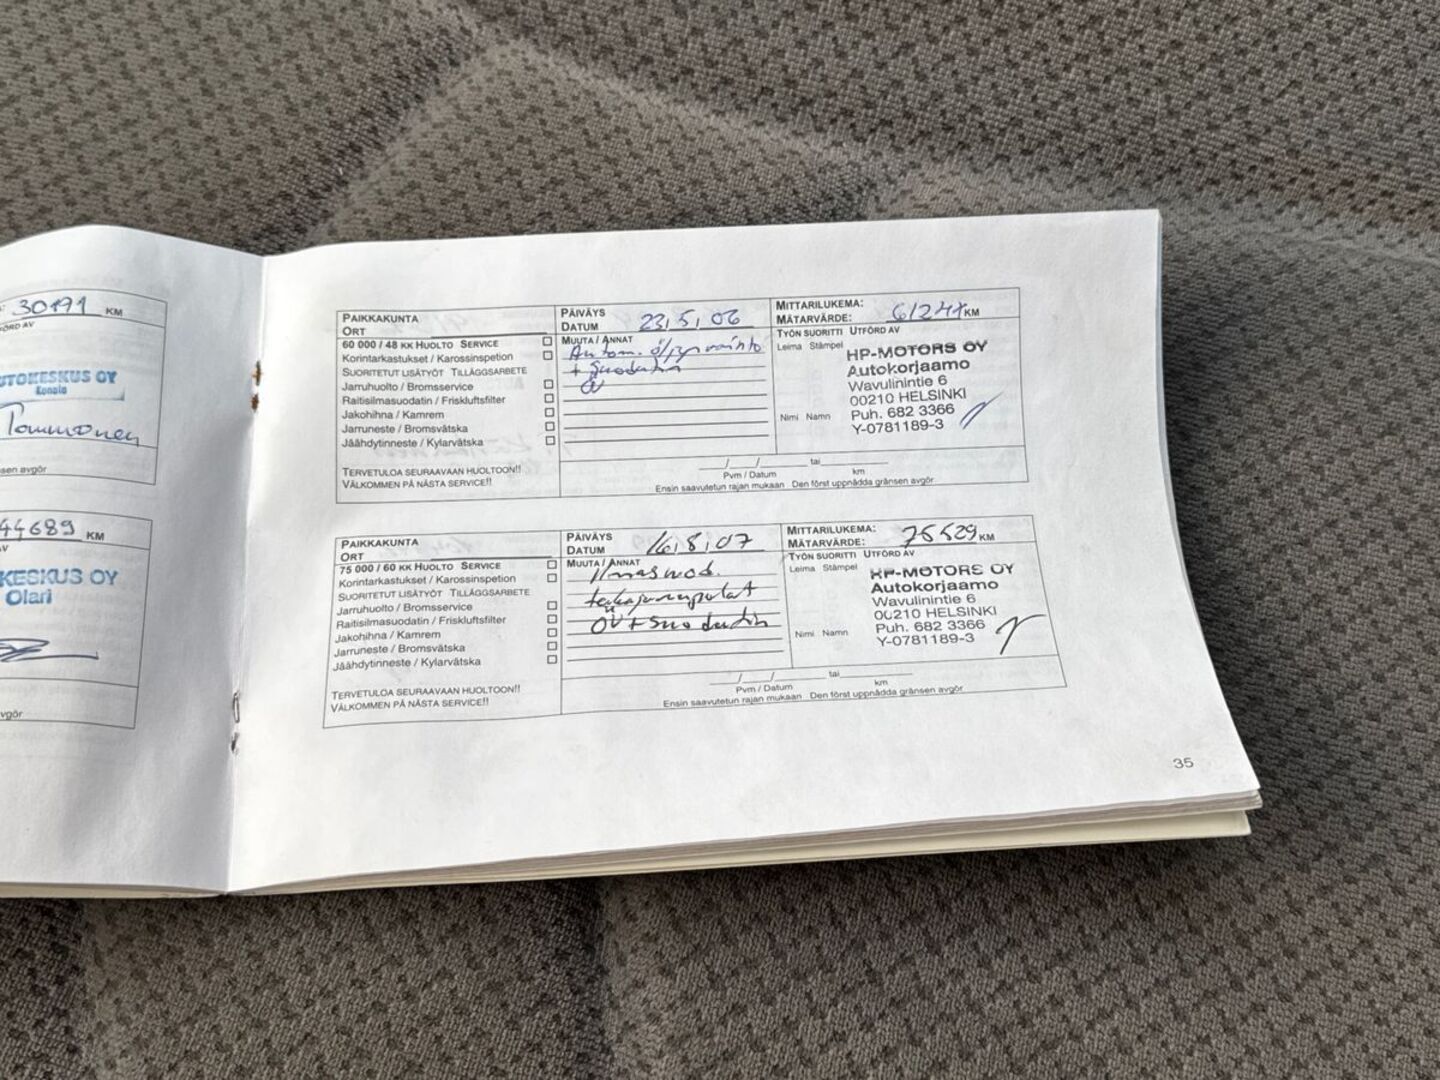 30191 KM
UTOKESKUS OY
Konala
Tommonen
44689 KM
KESKUS OY
Olari
PAIKKAKUNTA
ORT
PÄIVÄYS
DATUM 23,5,06
MITTARILUKEMA:
MÄTARVÄRDE: 61247 KM
60 000 / 48 KK HUOLTO SERVICE
Korintarkastukset / Karossinspetion
SUORITETUT LISÄTYÖT TILLÄGGSARBETE
Jarruhuolto / Bromsservice
Raitisilmasuodatin / Friskluftsfilter
Jakohihna / Kamrem
Jarruneste / Bromsvätska
Jäähdytinneste / Kylarvätska
TERVETULOA SEURAAVAAN HUOLTOON!!
VÄLKOMMEN PÅ NÄSTA SERVICE!!
MUUTA / ANNAT
Autom. öljynvaihto
+ suodatin
ÖV
TYÖN SUORITTI UTFÖRD AV
Leima Stämpel
HP-MOTORS OY
Autokorjaamo
Wavulinintie 6
00210 HELSINKI
Puh. 682 3366
Y-0781189-3
Nimi Namn
/ / tai
Pvm / Datum km
Ensin saavutetun rajan mukaan Den först uppnådda gränsen avgör
PAIKKAKUNTA
ORT
PÄIVÄYS
DATUM 16,8,07
MITTARILUKEMA:
MÄTARVÄRDE: 75529 KM
75 000 / 60 KK HUOLTO SERVICE
Korintarkastukset / Karossinspetion
SUORITETUT LISÄTYÖT TILLÄGGSARBETE
Jarruhuolto / Bromsservice
Raitisilmasuodatin / Friskluftsfilter
Jakohihna / Kamrem
Jarruneste / Bromsvätska
Jäähdytinneste / Kylarvätska
TERVETULOA SEURAAVAAN HUOLTOON!!
VÄLKOMMEN PÅ NÄSTA SERVICE!!
MUUTA / ANNAT
Ilmasuod.
takajarrupalat
ÖV + suodatin
TYÖN SUORITTI UTFÖRD AV
Leima Stämpel
HP-MOTORS OY
Autokorjaamo
Wavulinintie 6
00210 HELSINKI
Puh. 682 3366
Y-0781189-3
Nimi Namn
/ / tai
Pvm / Datum km
Ensin saavutetun rajan mukaan Den först uppnådda gränsen avgör
35